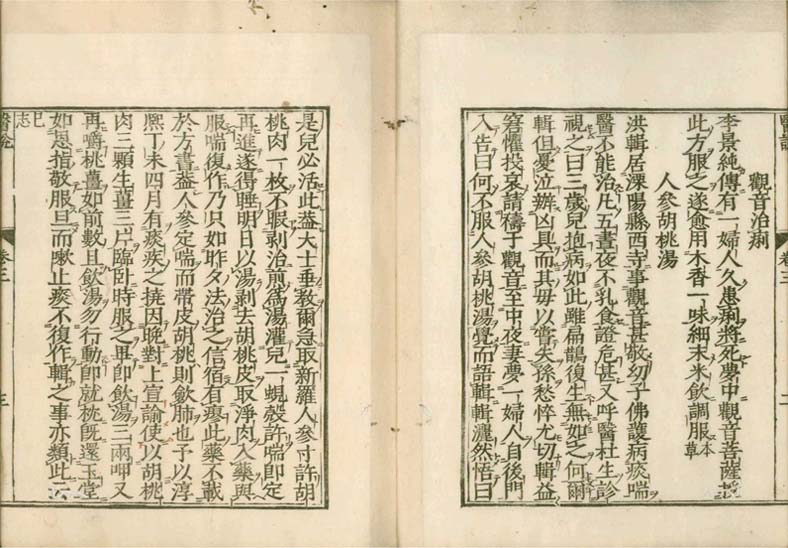 觀音治痢
李景純傳有一婦人久患痢將死夢中觀音菩薩
此方服之遂愈用木香一味細末米飲調服本草
人參胡桃湯
洪輯居溧陽縣西寺事觀音甚敬幼子佛護病痰喘
醫不能治凡五晝夜不乳食證危甚又呼醫杜生診
視之曰三歲兒抱病如此雖扁鵲復生無如之何爾
輯但憂泣辦凶具而其母以嘗失孫愁悴尤切輯益
窘懼投哀請禱于觀音至中夜妻夢一婦人自後門
入告曰何不服人參胡桃湯覺而語輯輯灑然悟曰
是兒必活此蓋大士垂教爾急取新羅人參寸許胡
桃肉一枚不暇剥治煎爲湯灌兒一蜆殻許喘即定
再進遂得睡明日以湯剥去胡桃皮取淨肉入藥與
服喘復作乃只如昨夕法治之信宿有瘳此藥不載
於方書蓋人參定喘而帶皮胡桃則斂肺也予以淳
熙丁未四月有痰疾之撓因晚對上宣諭使以胡桃
肉三顆生薑三片臨卧時服之畢即飲湯三兩呷又
再嚼桃薑如前數且飲湯勿行動即就枕旣還玉堂
如恩指敬服旦而嗽止痰不復作輯之事亦類此云
已志
卷三
三